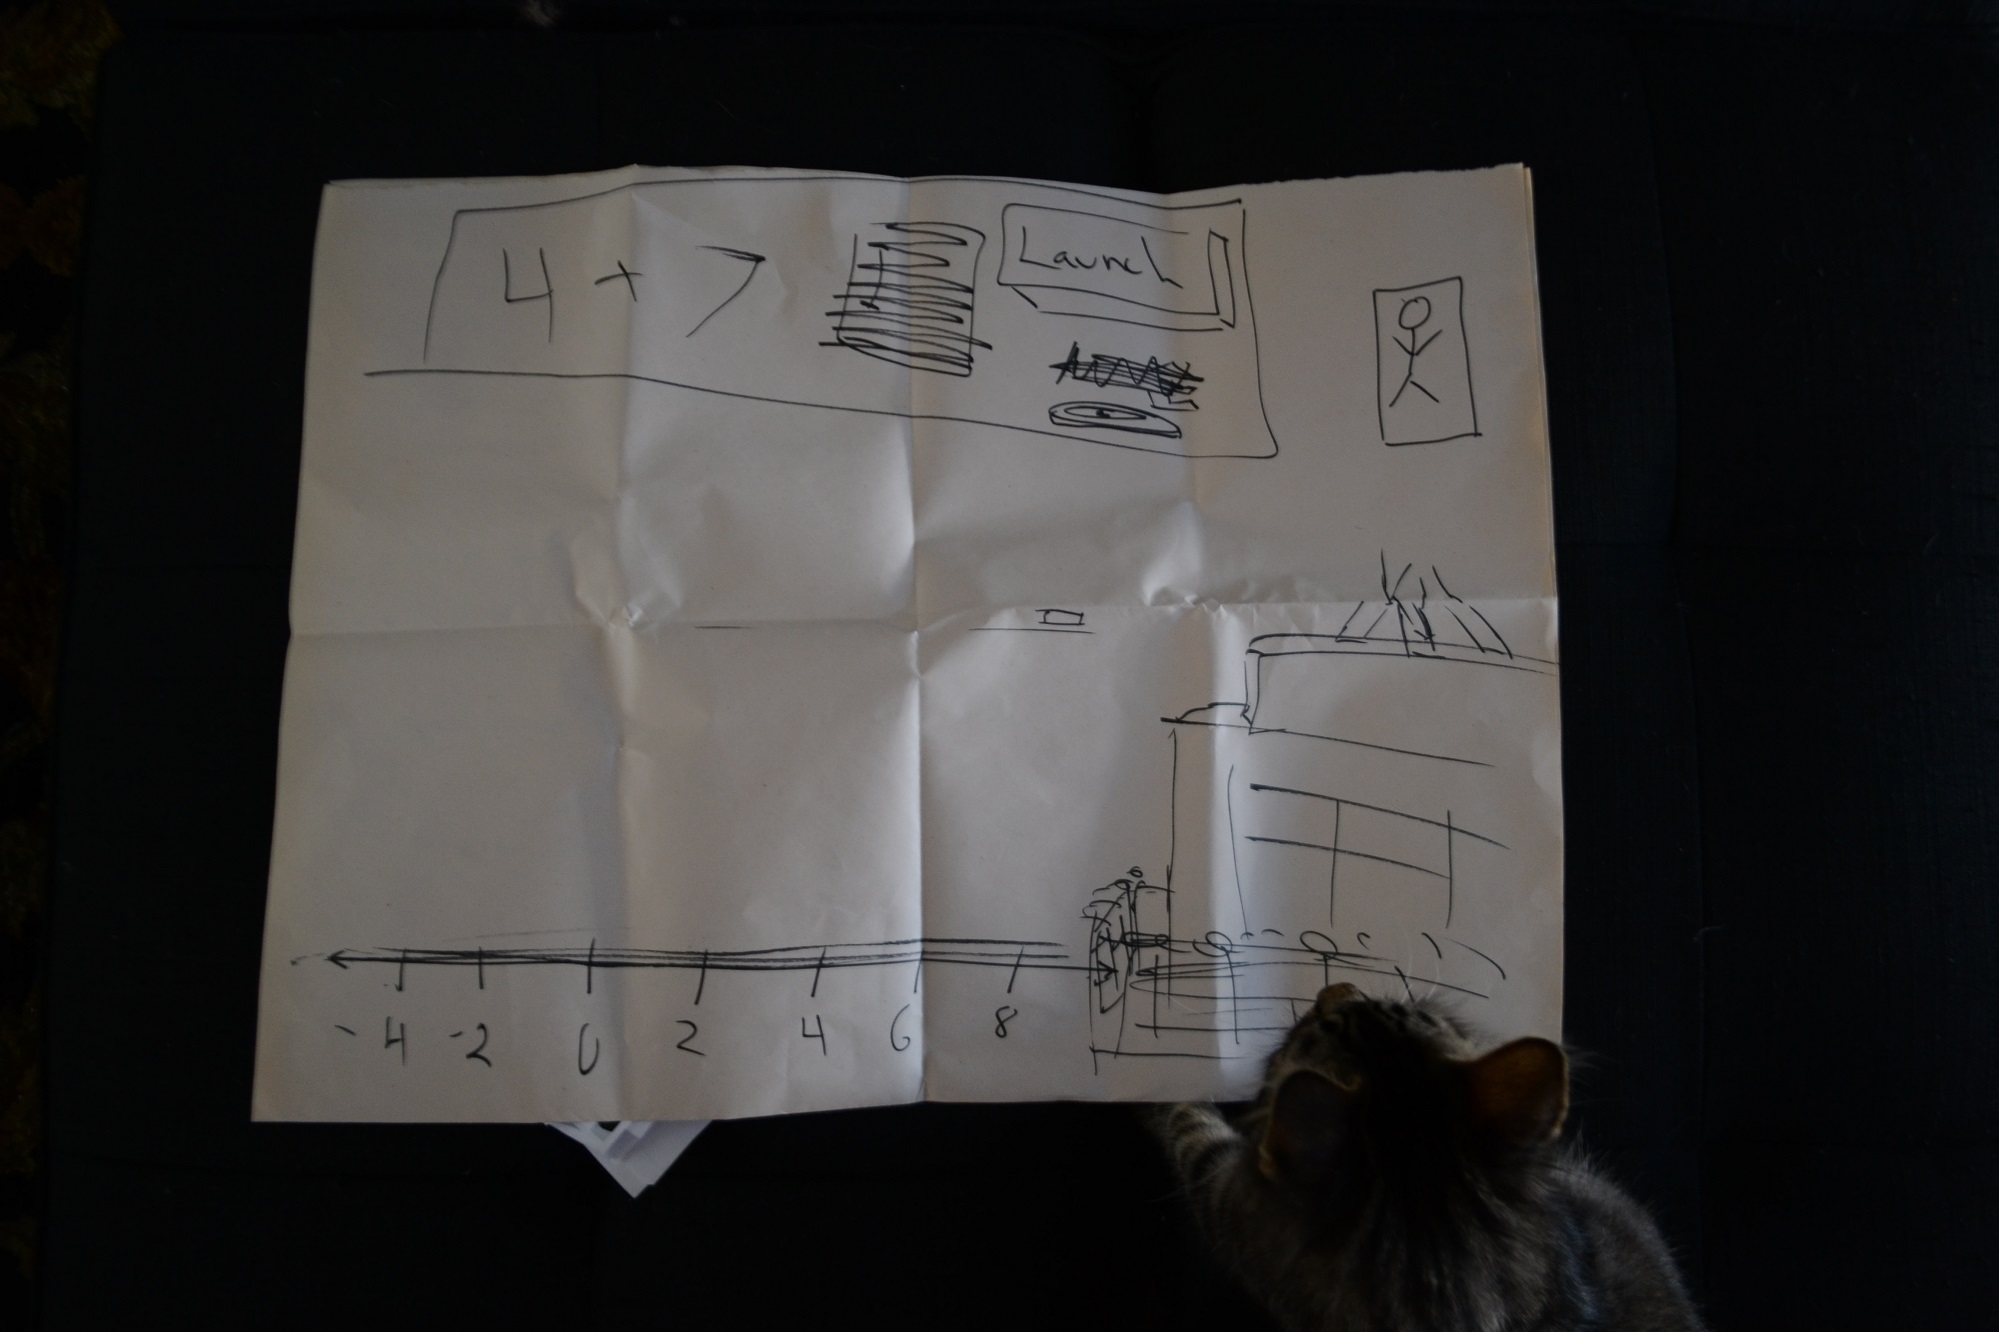 4 + 7
Launch
-4 -2 0 2 4 6 8